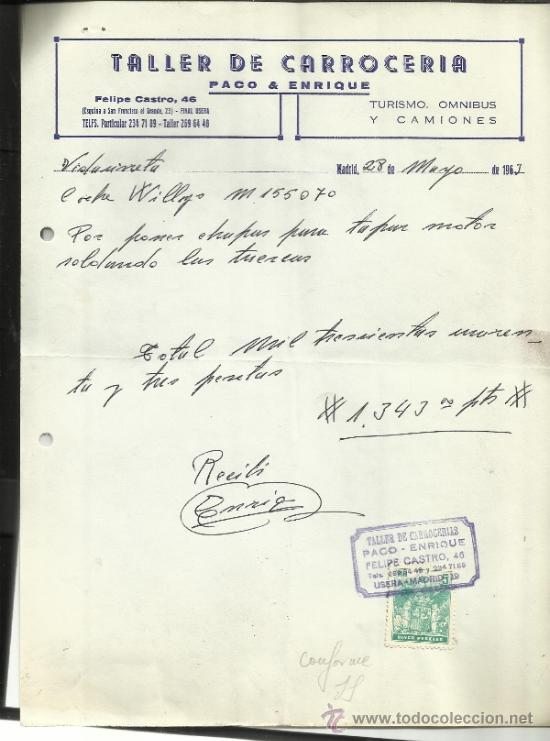 TALLER DE CARROCERIA
PACO & ENRIQUE
Felipe Castro, 46
(Esquina a San Francisco el Grande, 23) - FINAL USERA
TELFS. Particular 234 71 89 - Taller 269 64 48
TURISMO, OMNIBUS
Y CAMIONES
Vidaurreta Madrid, 28 de Mayo de 1967
Coche Willys M 155070
Por poner chapas para tapar motor
soldando las tuercas
Total Mil trescientas cuaren-
ta y tres pesetas
# 1.343 00 pts #
Recibi
Enriq
TALLER DE CARROCERIAS
PACO - ENRIQUE
FELIPE CASTRO, 46
Tels. y 234 71 89
USERA - MADRID-19
5
CINCO PESETAS
conforme
todocoleccion
www.todocoleccion.net